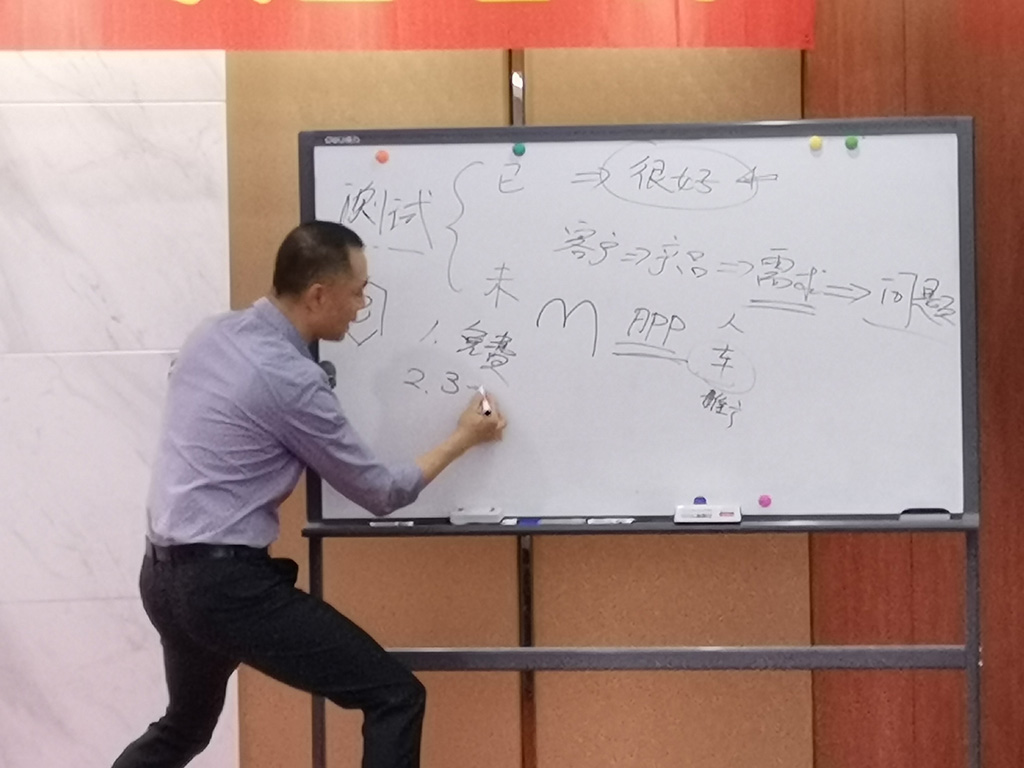 测试 { 已 ⇒ 很好 ⇐
客户⇒产品⇒需求⇒问题
未
APP 人
1. 免费 车
2. 3